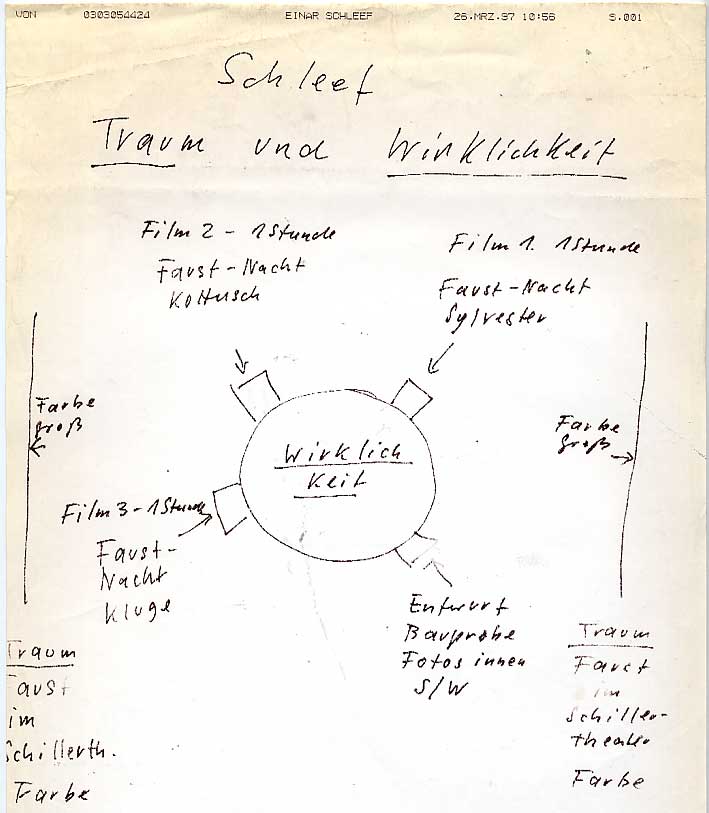 VON 0303054424 EINAR SCHLEEF 26.MRZ.97 10:56 S.001
Schleef
Traum und Wirklichkeit
Film 2 - 1 Stunde
Faust-Nacht
Kottusch
Film 1. 1 Stunde
Faust-Nacht
Sylvester
Farbe
groß
Farbe
groß
Wirklich
keit
Film 3 - 1 Stunde
Faust-
Nacht
Kluge
Entwurf
Bauprobe
Fotos innen
S/W
Traum
Faust
im
Schillerth.
Farbe
Traum
Faust
im
Schiller-
theater
Farbe